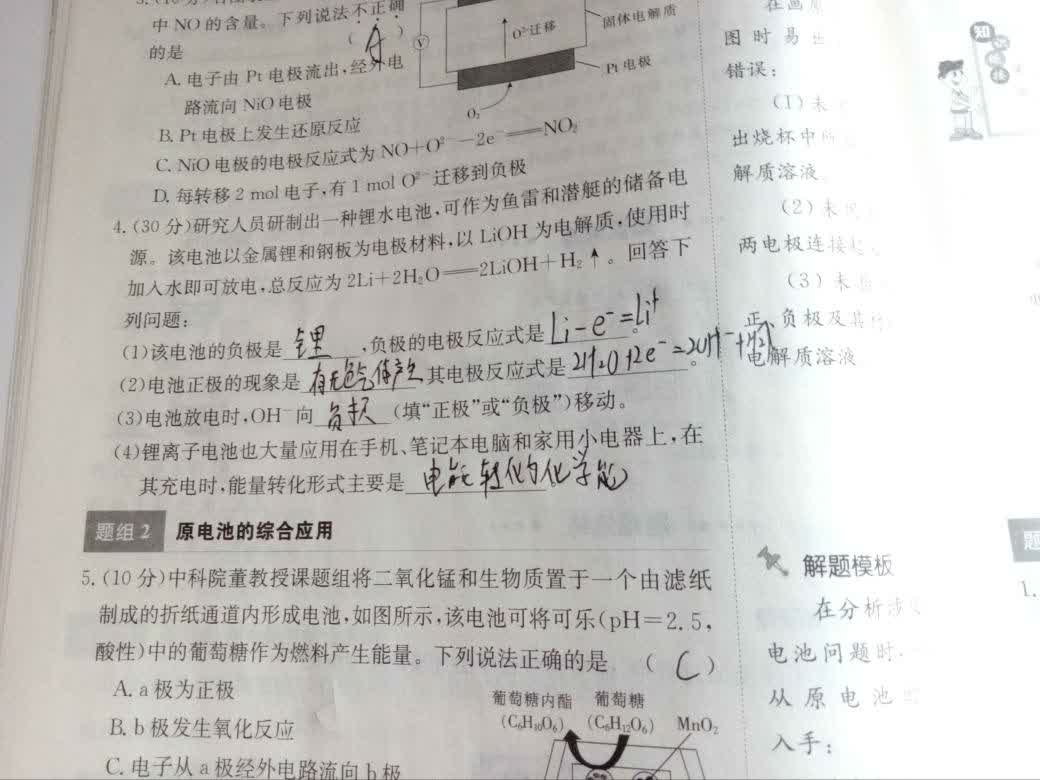 中NO的含量。下列说法不正确
的是 ( A )
A. 电子由 Pt 电极流出,经外电
路流向 NiO 电极
B. Pt 电极上发生还原反应
C. NiO 电极的电极反应式为 NO+O²⁻-2e⁻══NO₂
D. 每转移 2 mol 电子,有 1 mol O²⁻迁移到负极
V
O²⁻迁移
固体电解质
Pt 电极
O₂
4. (30 分)研究人员研制出一种锂水电池,可作为鱼雷和潜艇的储备电
源。该电池以金属锂和钢板为电极材料,以 LiOH 为电解质,使用时
加入水即可放电,总反应为 2Li+2H₂O══2LiOH+H₂↑。回答下
列问题:
(1)该电池的负极是 锂 ,负极的电极反应式是 Li-e⁻=Li⁺ 。
(2)电池正极的现象是 有无色气体产生 ,其电极反应式是 2H₂O+2e⁻=2OH⁻+H₂↑ 。
(3)电池放电时,OH⁻向 负极 (填“正极”或“负极”)移动。
(4)锂离子电池也大量应用在手机、笔记本电脑和家用小电器上,在
其充电时,能量转化形式主要是 电能转化为化学能
题组 2 原电池的综合应用
5. (10 分)中科院董教授课题组将二氧化锰和生物质置于一个由滤纸
制成的折纸通道内形成电池,如图所示,该电池可将可乐(pH=2.5,
酸性)中的葡萄糖作为燃料产生能量。下列说法正确的是 ( C )
A. a 极为正极
B. b 极发生氧化反应
C. 电子从 a 极经外电路流向 b 极
葡萄糖内酯 葡萄糖
(C₆H₁₀O₆) (C₆H₁₂O₆) MnO₂
在画
图时易
错误:
(1)未
出烧杯中
解质溶液
(2)未
两电极连接
(3)未
正、负极及其
电解质溶液
知
解题模板
在分析涉
电池问题时,
从原电池
入手:
题
1.